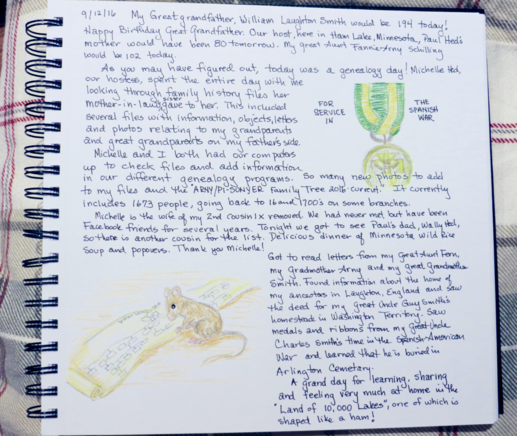 9/12/16 My Great grandfather, William Laughton Smith would be 194 today!
Happy Birthday Great Grandfather. Our host, here in Ham Lake, Minnesota, Paul Hed's
mother would have been 80 tomorrow. My great Aunt Fannie Arny Schilling
would be 102 today.
As you may have figured out, today was a genealogy day! Michelle Hed,
our hostess, spent the entire day with me
looking through family history files her
mother-in-law's sister gave to her. This included
several files with information, objects, letters
and photos relating to my grandparents
and great grandparents on my father's side.
FOR
SERVICE
IN
THE
SPANISH
WAR
Michelle and I both had our computers
up to check files and add information
in our different genealogy programs. So many new photos to add
to my files and the "ARNY/PI SONYER Family Tree 2016 current." It currently
includes 1673 people, going back to 16 and 1700's on some branches.
Michelle is the wife of my 2nd cousin 1x removed. We had never met, but have been
Facebook friends for several years. Tonight we got to see Paul's dad, Wally Hed,
so there is another cousin for the list. Delicious dinner of Minnesota Wild Rice
Soup and popovers. Thank you Michelle!
Got to read letters from my Great Aunt Fern,
my grandmother Arny and my great Grandmother
Smith. Found information about the home of
my ancestors in Laughton, England and saw
the deed for my great Uncle Guy Smith's
homestead in Washington Territory. Saw
medals and ribbons from my great Uncle
Charles Smith's time in the Spanish-American
War and learned that he is buried in
Arlington Cemetary.
A grand day for learning, sharing
and feeling very much at home in the
"Land of 10,000 Lakes", one of which is
shaped like a ham!